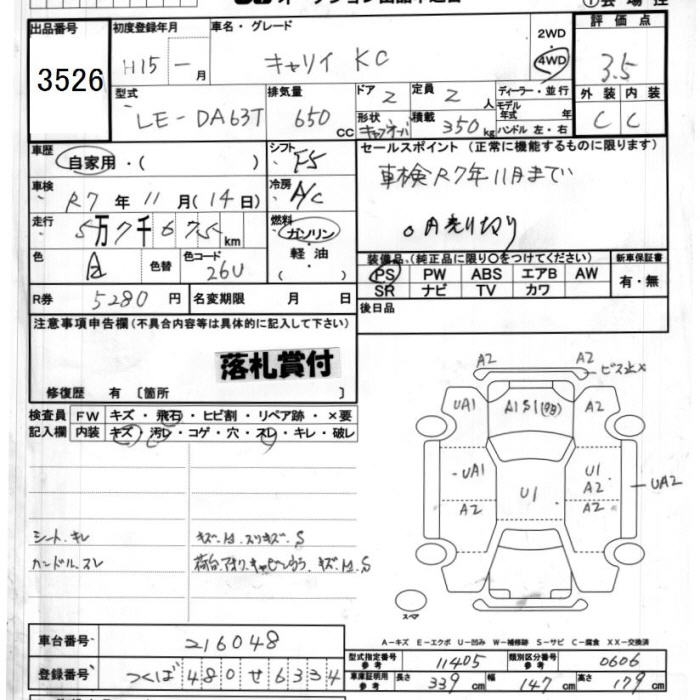 オークション出品申込書
出品番号 3526
初度登録年月 H15年 - 月
車名・グレード キャリイ KC
2WD 4WD
評価点 3.5
型式 LE-DA63T
排気量 650 CC
ドア 2
定員 2 人
形状 キャブオーバ
積載 350 kg
ディーラー・並行
モデル年式 年
ハンドル 左・右
外装 C
内装 C
車歴 自家用・( )
シフト F5
セールスポイント (正常に機能するものに限ります)
車検R7年11月まで
車検 R7年11月(14日)
冷房 A/C
走行 5万7千675km
燃料 ガソリン・軽油 ( )
○月売り切り
色 白
色替
色コード 26U
装備品(純正品に限り○をつけてください)
新車保証書 有・無
PS PW ABS エアB AW
SR ナビ TV カワ
R券 5280 円
名変期限 月 日
後日品
注意事項申告欄(不具合内容等は具体的に記入して下さい)
落札賞付
修復歴 有 [箇所 ]
検査員記入欄
FW キズ・飛石・ヒビ割・リペア跡・×要
内装 キズ・汚レ・コゲ・穴・スレ・キレ・破レ
シート.キレ
ハンドル.スレ
キズ.凹.スリキズ.S
A2 A2 ビス止×
UA1 A1 S1 A2
UA1 U1 U1 A2 UA2
A2 A2
スペア
A-キズ E-エクボ U-凹み W-補修跡 S-サビ C-腐食 XX-交換済
車台番号 216048
登録番号 つくば 480 せ 6334
型式指定番号参考 11405
類別区分番号参考 0606
車庫証明用参考 長さ 339cm 幅 147cm 高さ 179cm